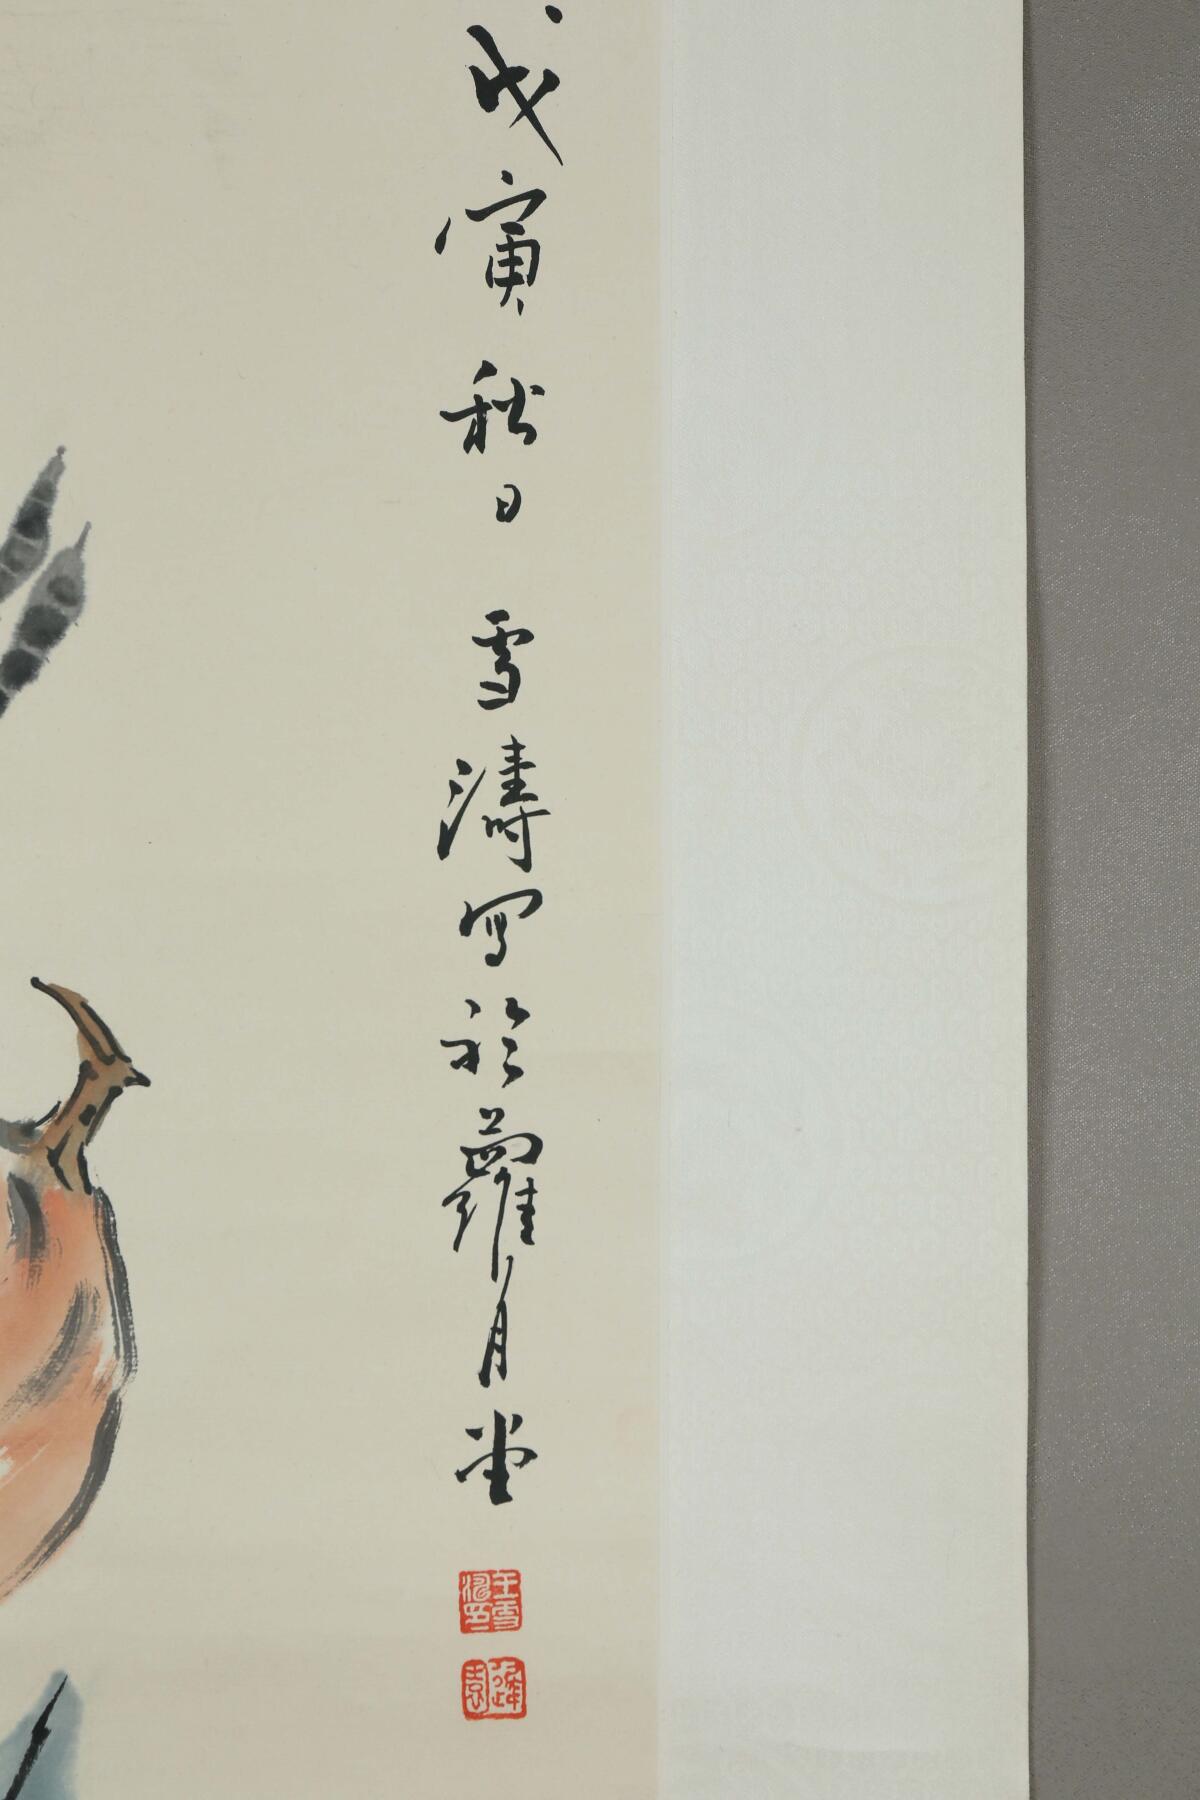 戊寅秋日 雪濤寫於蘿月堂
王雪濤印
遲園